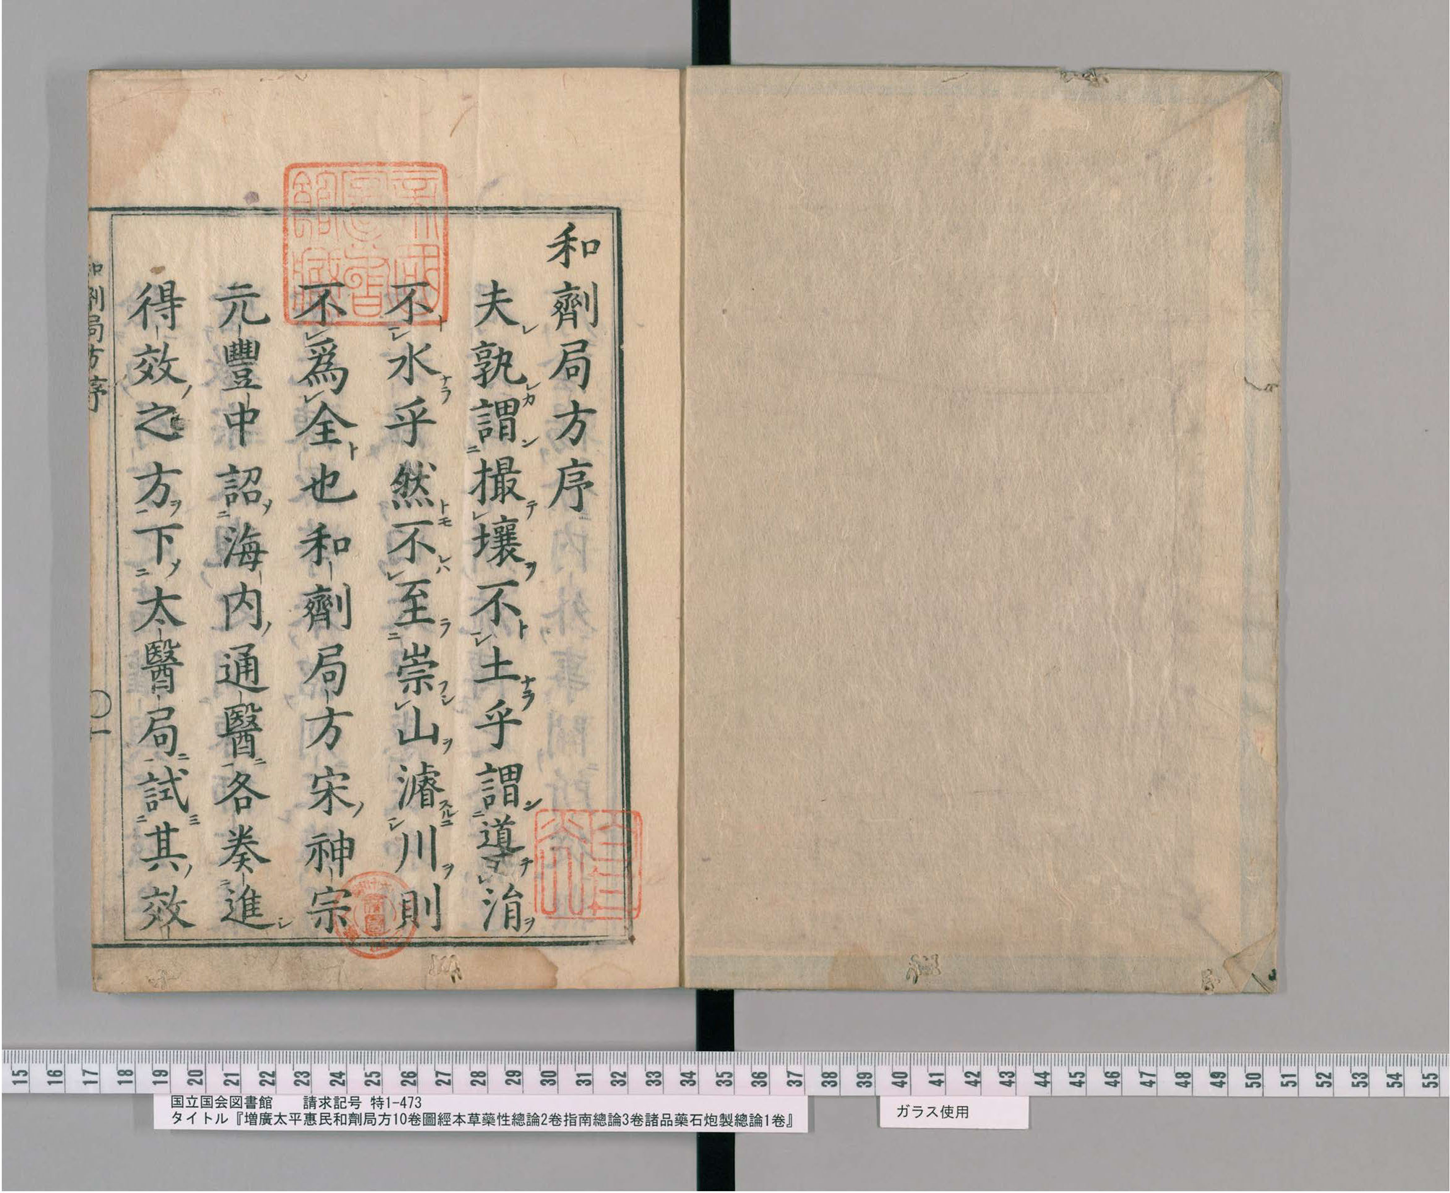 和劑局方序
夫孰謂撮壤不土乎謂導涓
不水乎然不至崇山濬川則
不爲全也和劑局方宋神宗
元豐中詔海内通醫各奏進
得效之方下太醫局試其效
和劑局方序
一
帝國圖書館藏
15 16 17 18 19 20 21 22 23 24 25 26 27 28 29 30 31 32 33 34 35 36 37 38 39 40 41 42 43 44 45 46 47 48 49 50 51 52 53 54 55
国立国会図書館 請求記号 特1-473
タイトル『増廣太平惠民和劑局方10卷圖經本草藥性總論2卷指南總論3卷諸品藥石炮製總論1卷』
ガラス使用